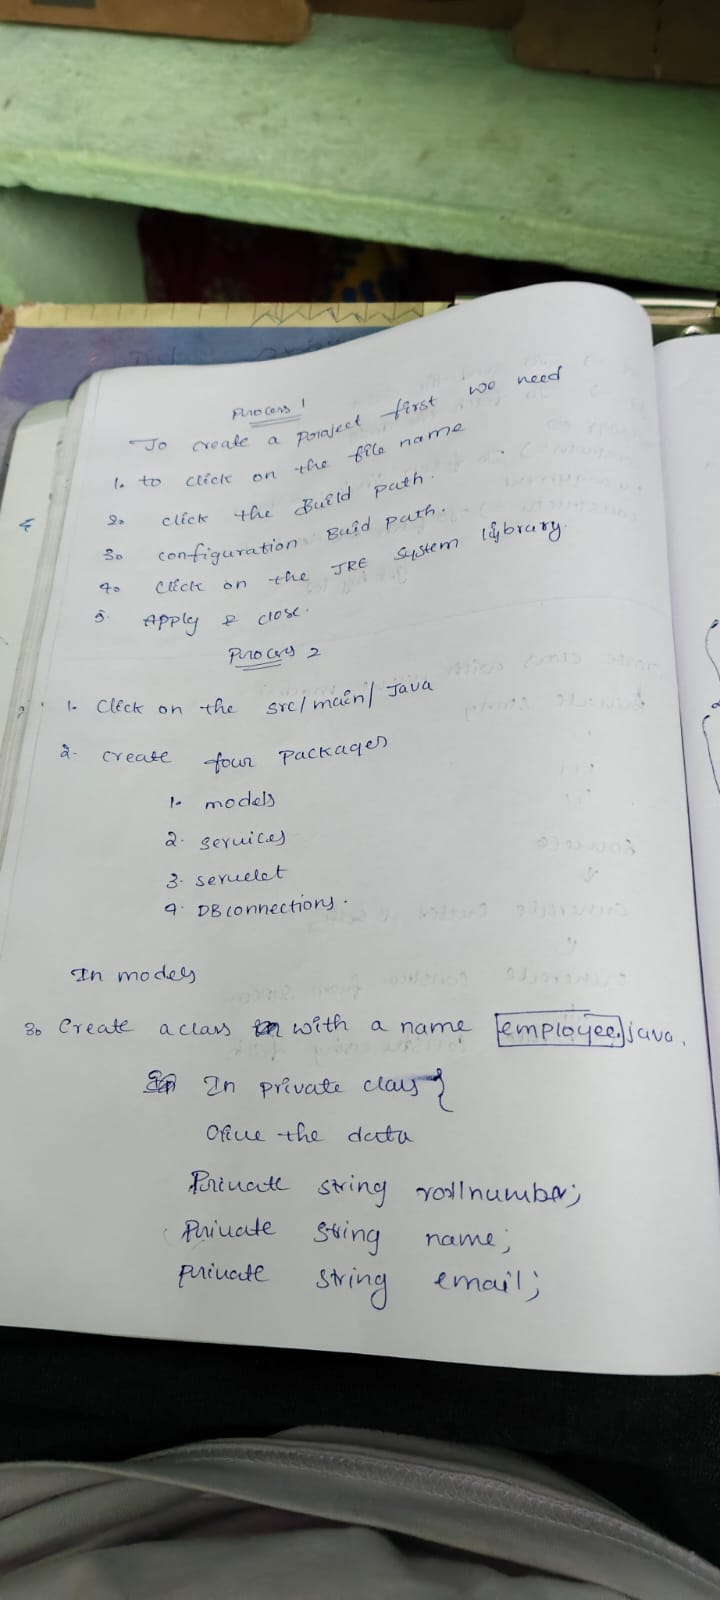 Process 1
To create a project first we need
1. to click on the file name
2. click the Build path.
3. configuration Buid path.
4. Click on the JRE System library.
5. Apply & close.
Process 2
1. Click on the src/main/Java
2. create four packages
1. models
2. services
3. servelet
4. DB connections.
In models
3. Create a class with a name employee.java.
In private class {
the data
Private string rollnumber;
Private string name;
private string email;